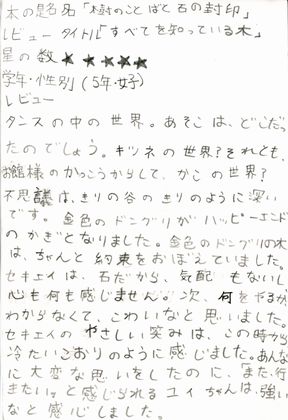 本の題名「樹のことばと石の封印」
レビュータイトル「すべてを知っている木」
星の数★★★★★
学年・性別(5年・女子)
レビュー
タンスの中の世界。あそこは、どこだっ
たのでしょう。キツネの世界?それとも、
お館様のかっこうからして、かこの世界?
不思議は、きりの谷のきりのように深い
です。金色のドングリがハッピーエンド
のかぎとなりました。金色のドングリの木
は、ちゃんと約束をおぼえていました。
セキエイは、石だから、気配もないし
心も何も感じません。次、何をやるか
わからなくて、こわいなと思いました。
セキエイのやさしい笑みは、この時から
冷たいこおりのように感じました。あんな
に大変な思いをしたのに、「また、行
きたいっ」と感じられるユイちゃんは、強い
なと感じしました。